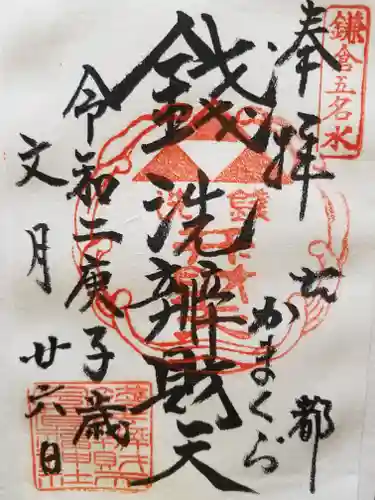 鎌倉五名水
奉拝
古都
かまくら
銭洗辨財天
令和二庚子歳
文月廿六日